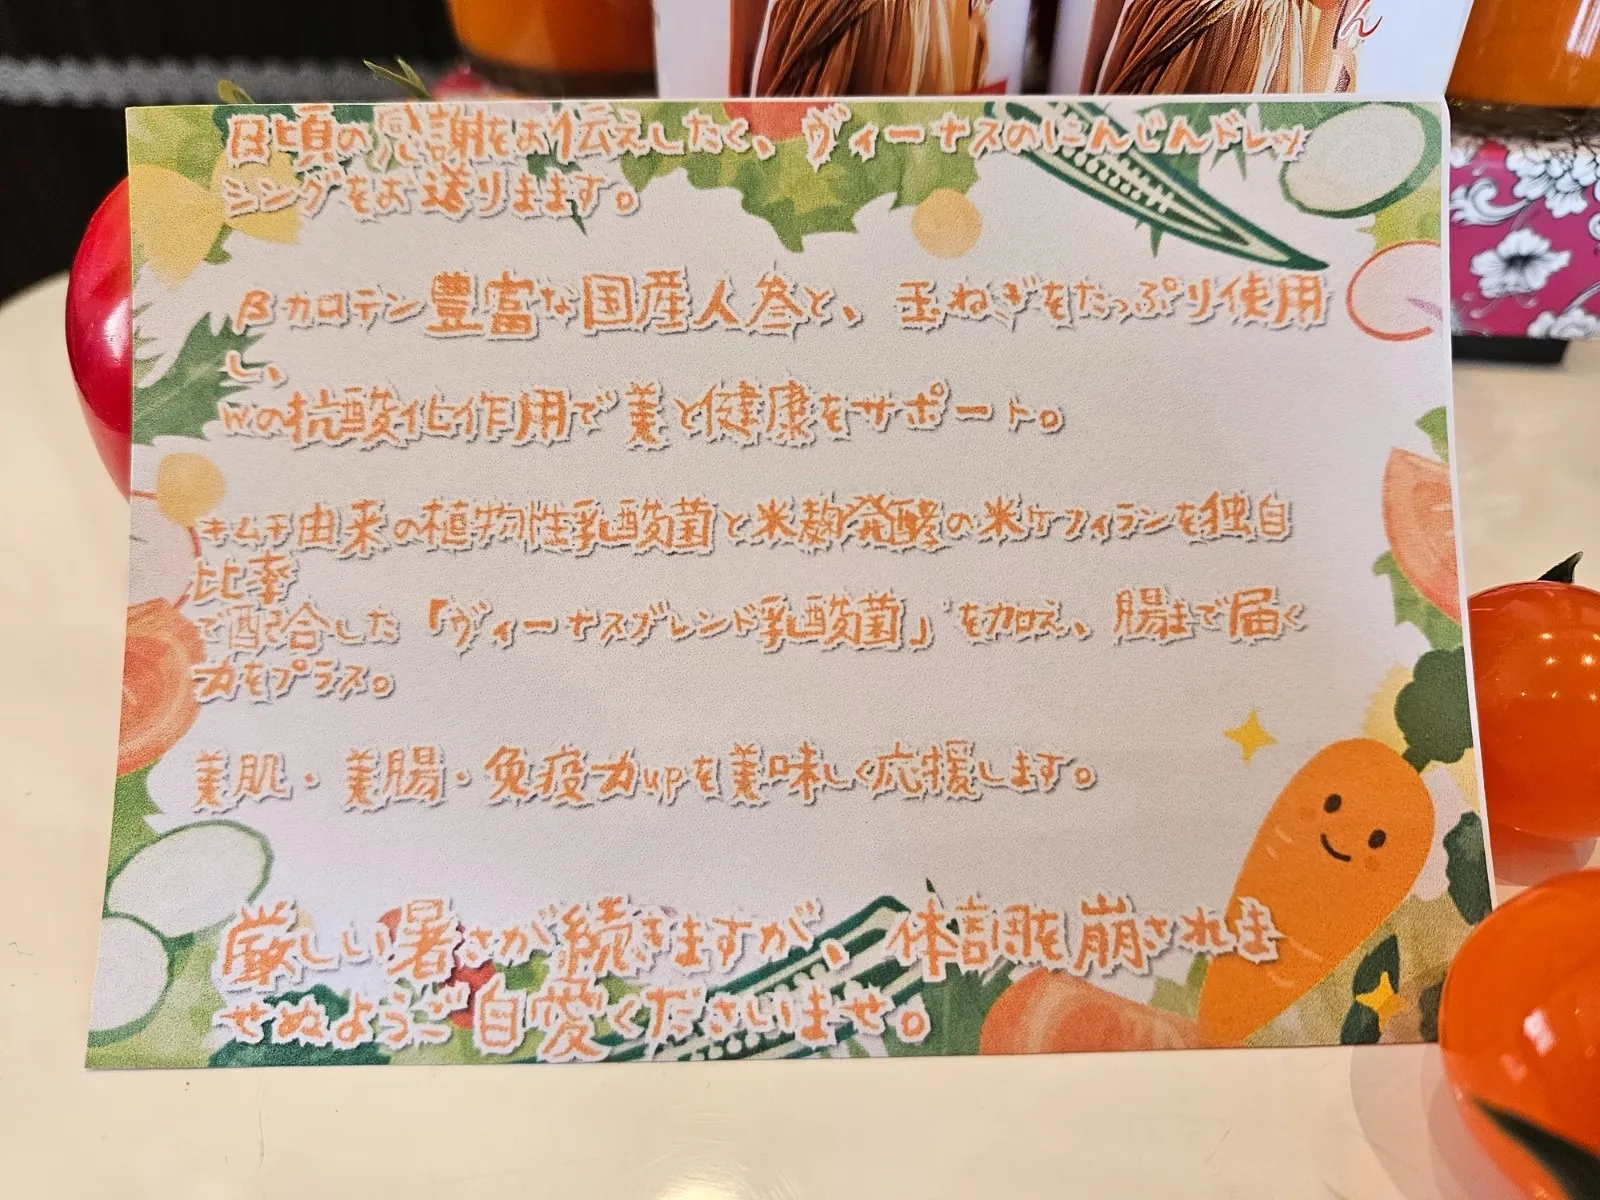 日頃の感謝をお伝えしたく、ヴィーナスのにんじんドレッ
シングをお送りします。
βカロテン豊富な国産人参と、玉ねぎをたっぷり使用
し、
Wの抗酸化作用で美と健康をサポート。
キムチ由来の植物性乳酸菌と米麹発酵の米ケフィランを独自
比率
で配合した「ヴィーナスブレンド乳酸菌」を加え、腸まで届く
力をプラス。
美肌・美腸・免疫力upを美味しく応援します。
厳しい暑さが続きますが、体調を崩されま
せぬようご自愛くださいませ。
ん